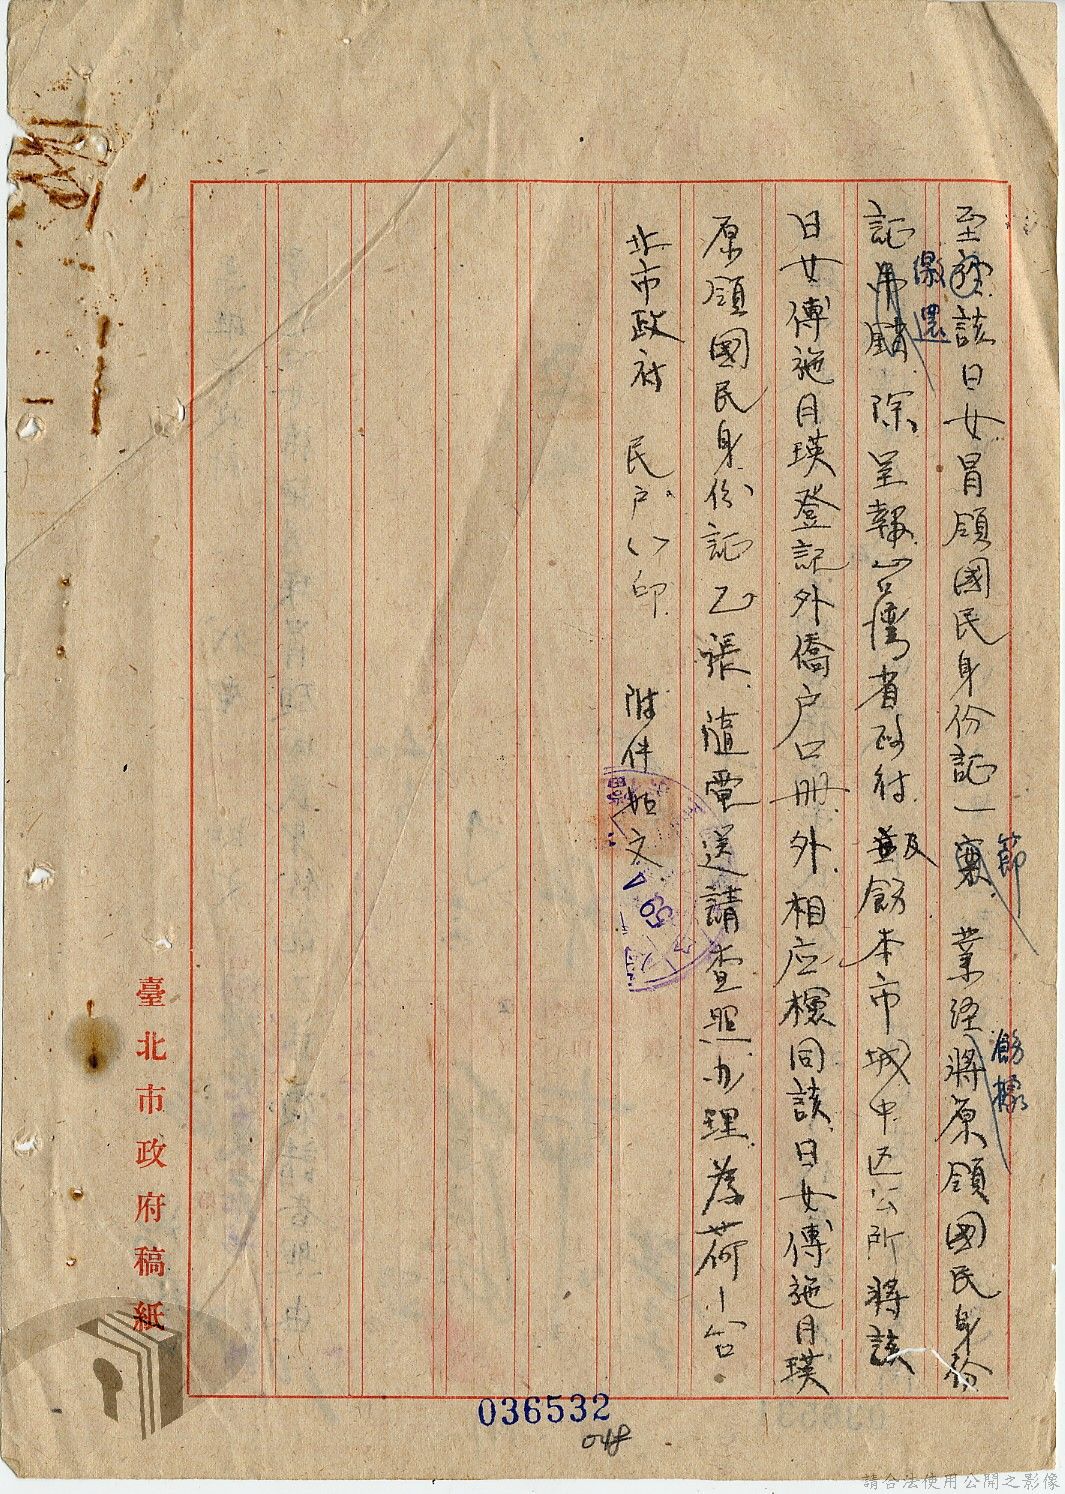 至該日女冒領國民身份証一節業経飭據將原領國民身份
証繳還除呈報台灣省政府及飭本市城中区公所將該
日女傅施月瑛登記外僑户口册外相应檢同該日女傅施月瑛
原領國民身份証乙張隨電送請查照办理為荷
北市政府 民户 印 附件如文
59
臺北市政府稿紙
036532
048
請合法使用公開之影像